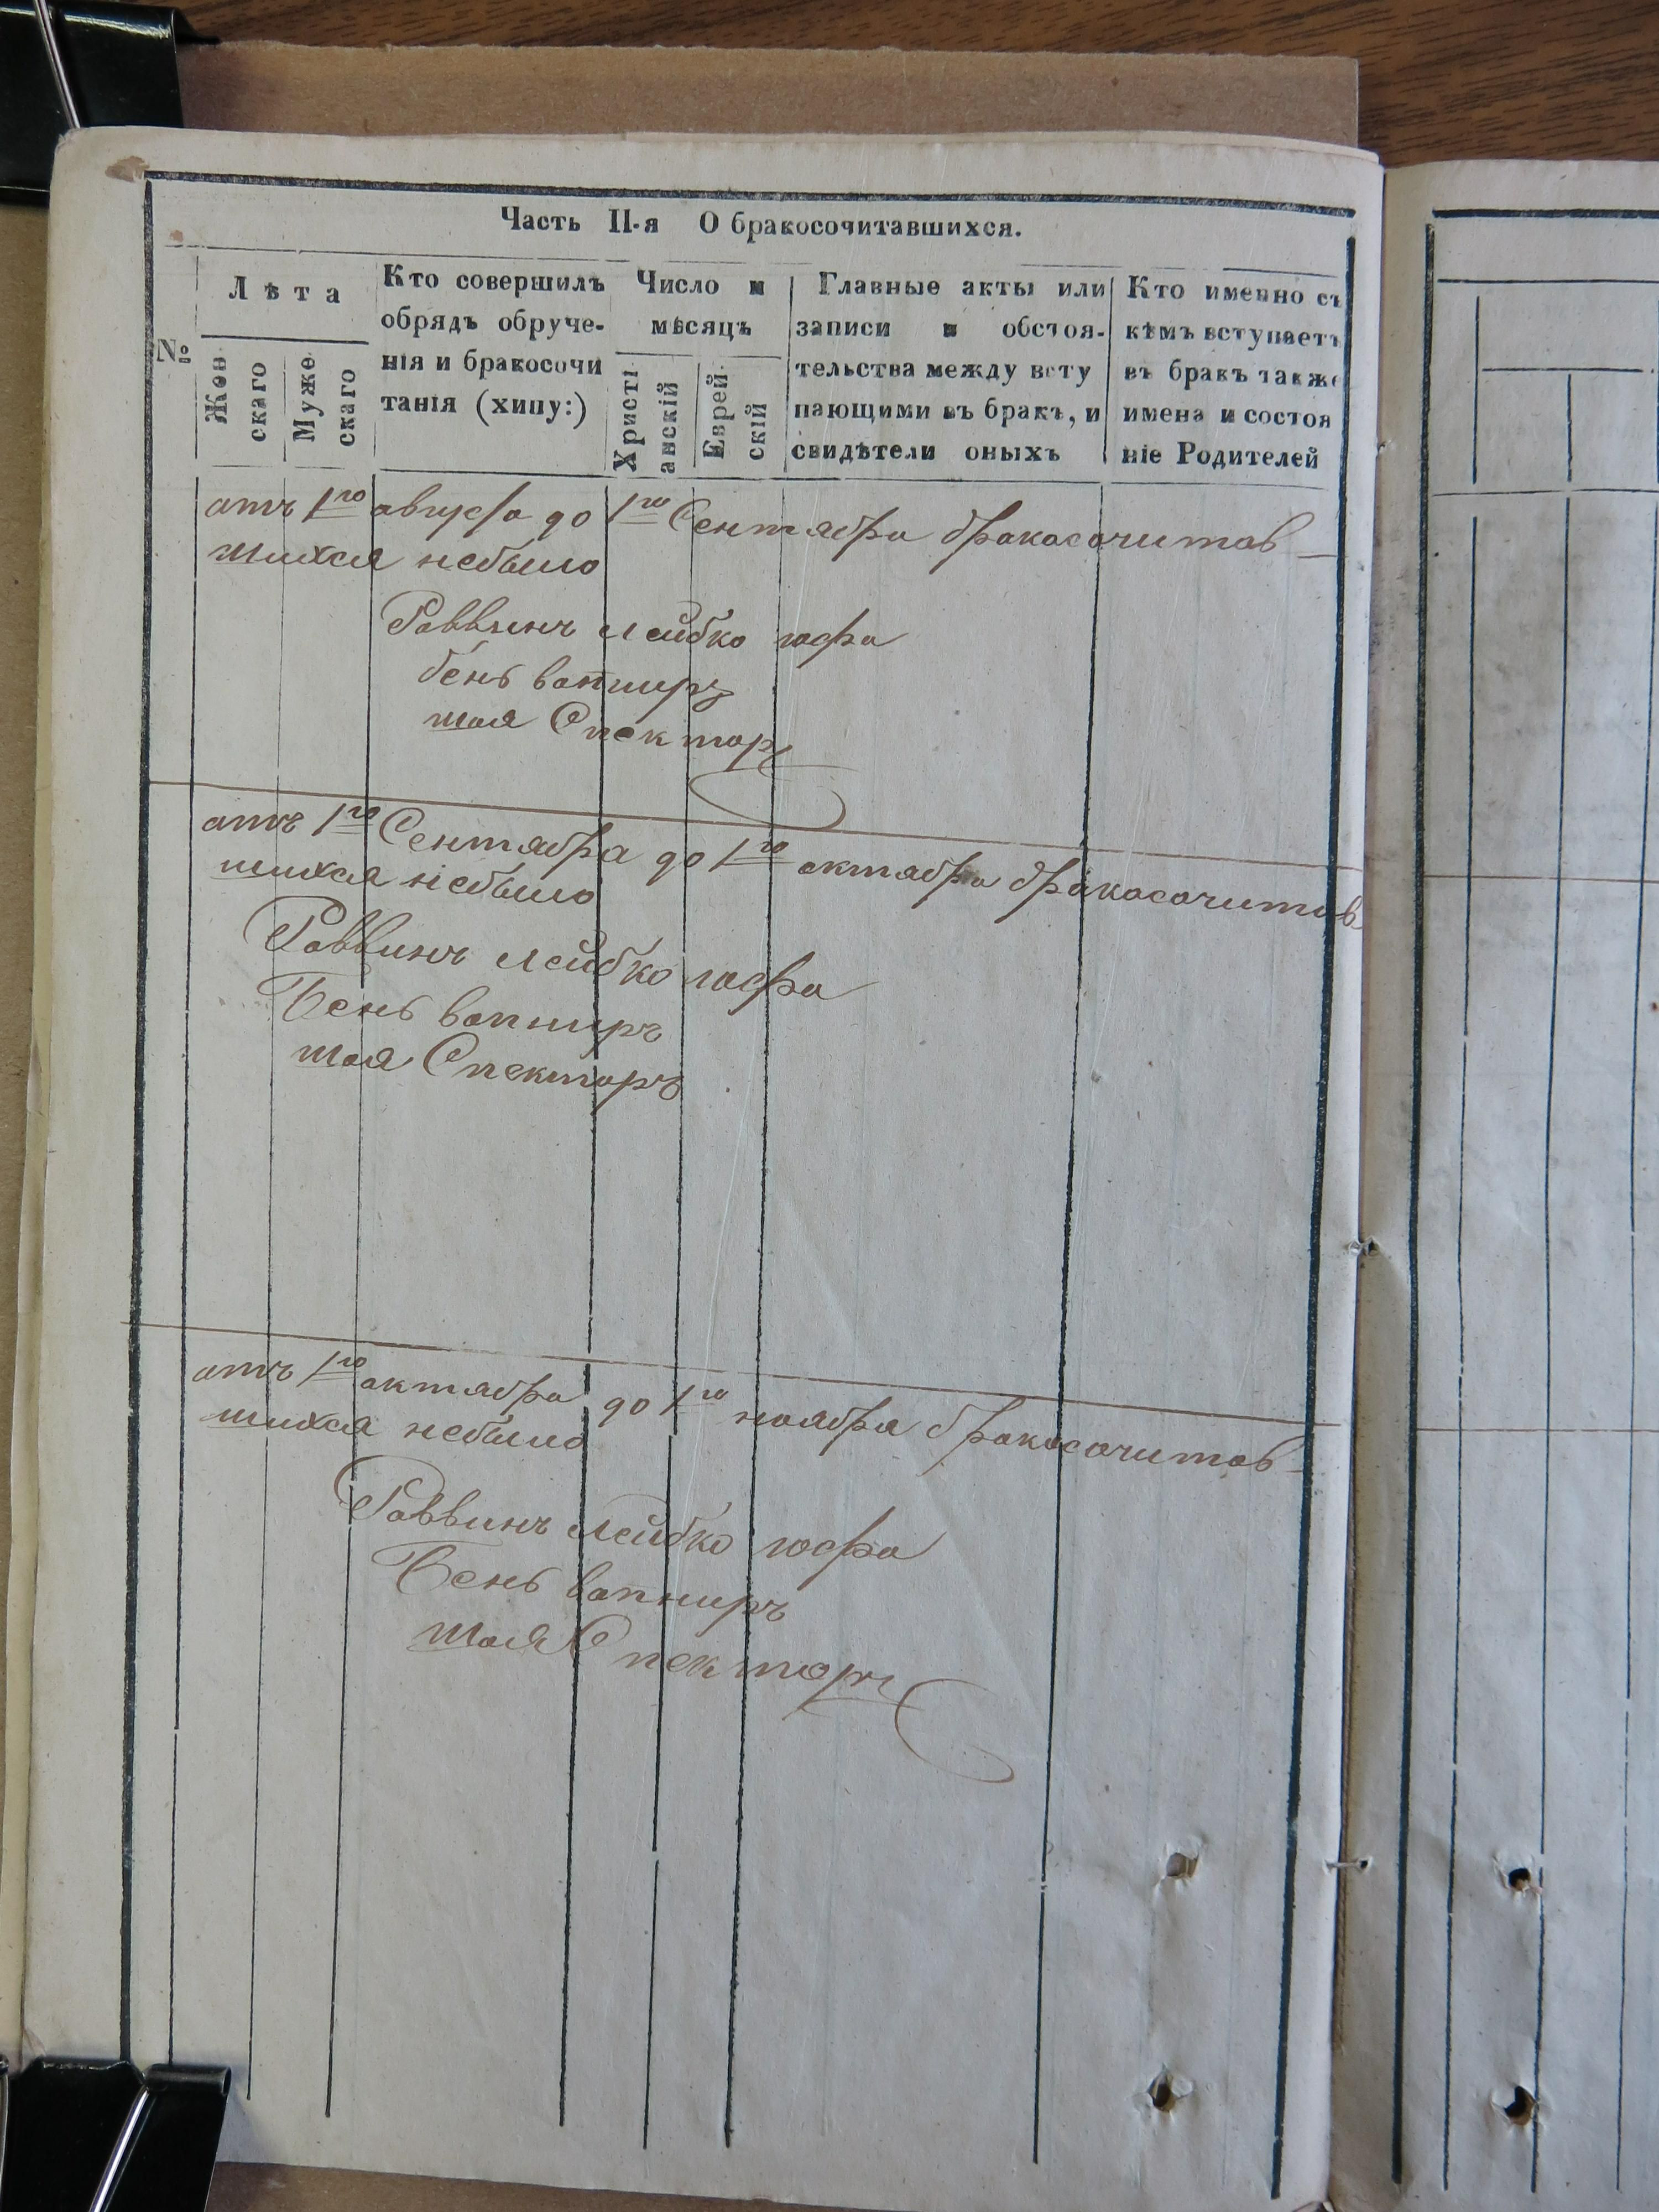 Часть II-я О бракосочитавшихся.
№
Лѣта
Женскаго
Мужескаго
Кто совершилъ
обрядъ обруче-
нія и бракосочи
танія (хипу:)
Число и
мѣсяцъ
Христіанскій
Еврейскій
Главные акты или
записи и обстоя-
тельства между всту
пающими въ бракъ, и
свидѣтели оныхъ
Кто именно съ
кѣмъ вступаетъ
въ бракъ также
имена и состоя
ніе Родителей
отъ 1го августа до 1го Сентября бракосочитав-
шихся небыло
Раввинъ Лейбко юфа
бень вапниръ
шая Спекторъ
отъ 1го Сентября до 1го октября бракосочитав
шихся небыло
Раввинъ Лейбко юфа
Бень вапниръ
шая Спекторъ
отъ 1го октября до 1го ноября бракосочитав-
шихся небыло
Раввинъ Лейбко юфа
Бень вапниръ
шая Спекторъ